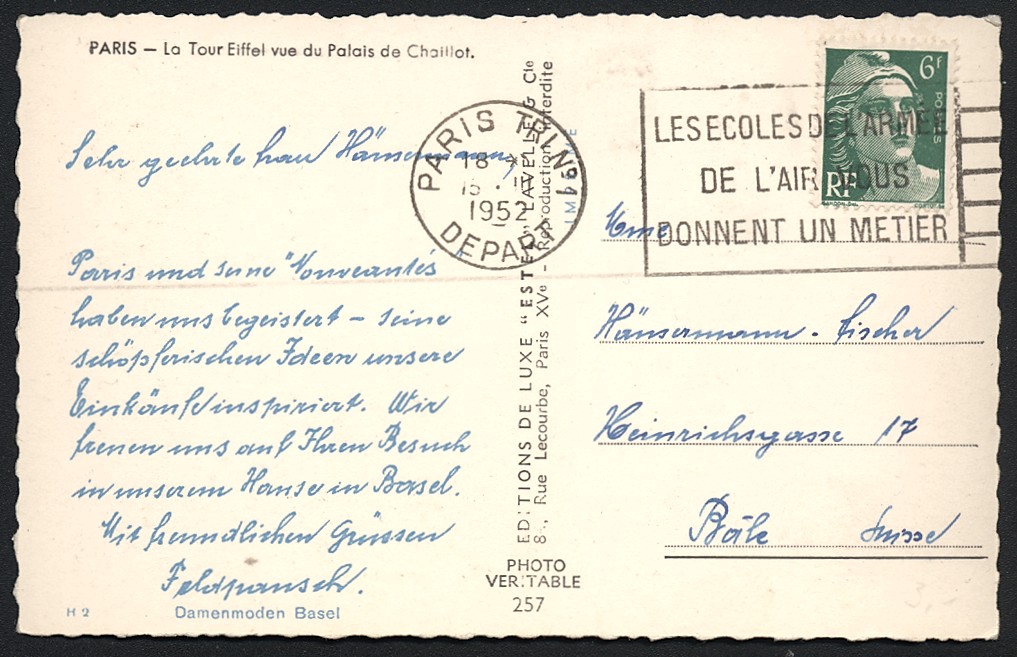 PARIS — La Tour Eiffel vue du Palais de Chaillot.
Sehr geehrte Frau Hänsermann,
Paris und seine "Nouveautés
haben uns begeistert – seine
schöpferischen Ideen unsere
Einkäufe inspiriert. Wir
freuen uns auf Ihren Besuch
in unserem Hause in Basel.
Mit freundlichen Grüssen
Feldpausch.
H 2
Damenmoden Basel
EDITIONS DE LUXE "ESTEL" LAVELLE G Cie
8 ., Rue Lecourbe, Paris XVe - Reproduction interdite
PHOTO
VERITABLE
257
PARIS TRI No
18
15
1952
DEPART
LES ECOLES DE L'ARMEE
DE L'AIR VOUS
DONNENT UN METIER
6f
POSTES
RF
Mme
Hänsermann - Fischer
Heinrichsgasse 17
Bâle Suisse
3,-